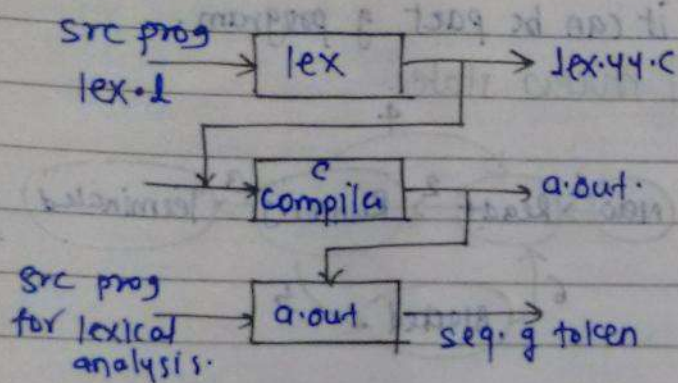 src prog
lex.l
lex
lex.yy.c
C
compila
a.out.
src prog
for lexical
analysis.
a.out
seq. g token